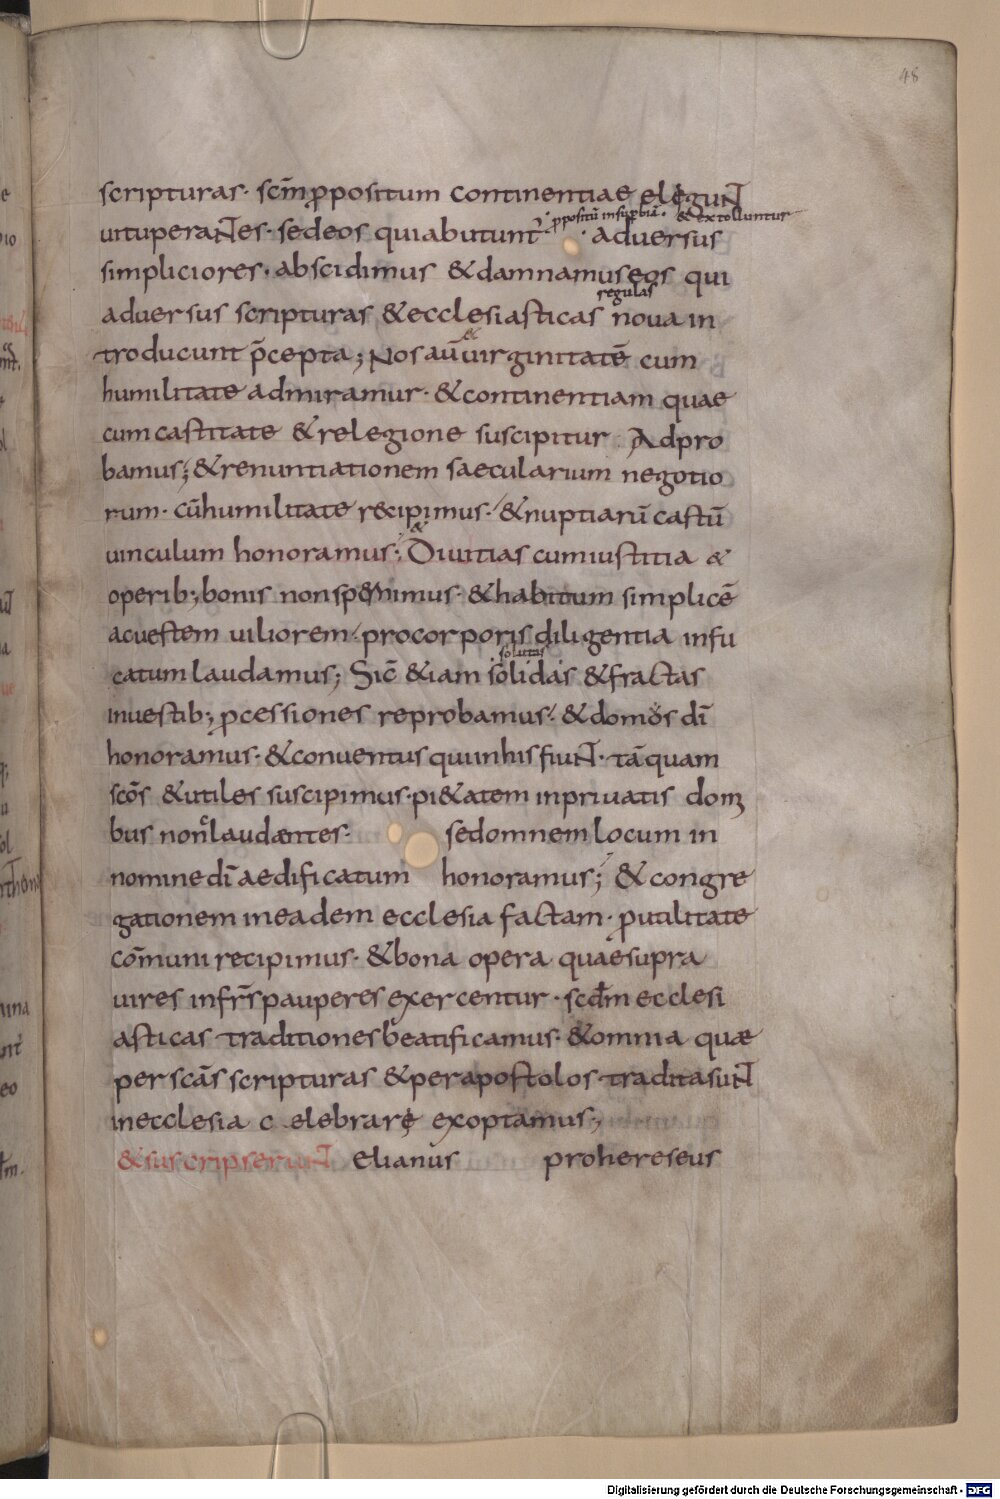 48
scripturas· scm̄ ꝓpositum continentiae elegunt
uituperantes· sed eos qui abutunt̄ ·ꝓpositū insuꝑbiā· & extolluntur adversus
simpliciores· abscidimus & damnamus eos qui
adversus scripturas & ecclesiasticas regulas noua in
troducunt p̄cepta; Nos aū & uirginitatē cum
humilitate admiramur· & continentiam quae
cum castitate & relegione suscipitur Adpro
bamus; & renuntiationem saecularium negotio
rum· cū humilitate recipimus· & nuptiarū castū
uinculum honoramus; & Diuitias cum iustitia &
operib; bonis non spernimus· & habitum simplicē
ac uestem uiliorem· pro corporis diligentia infu
catum laudamus; Sic̄ & iam solidas solutas & fractas
in uestib; ꝓcessiones reprobamus· & domos dī
honoramus· & conuentus qui in his fiunt· tāquam
scōs & utiles suscipimus· pi&atem in priuatis domi
bus non laudantes· sed omnem locum in
nomine dī aedificatum honoramus; & congre
gationem in eadem ecclesia factam· ꝓ utilitate
cōmuni recipimus· & bona opera quae supra
uires in frs̄ pauperes exercentur· scdm̄ ecclesi
asticas traditiones beatificamus· & omnia quae
per scās scripturas & per apostolos tradita sunt
in ecclesia celebrarę exoptamus;
& suscripserunt elianus prohereseus
Digitalisierung gefördert durch die Deutsche Forschungsgemeinschaft - DFG